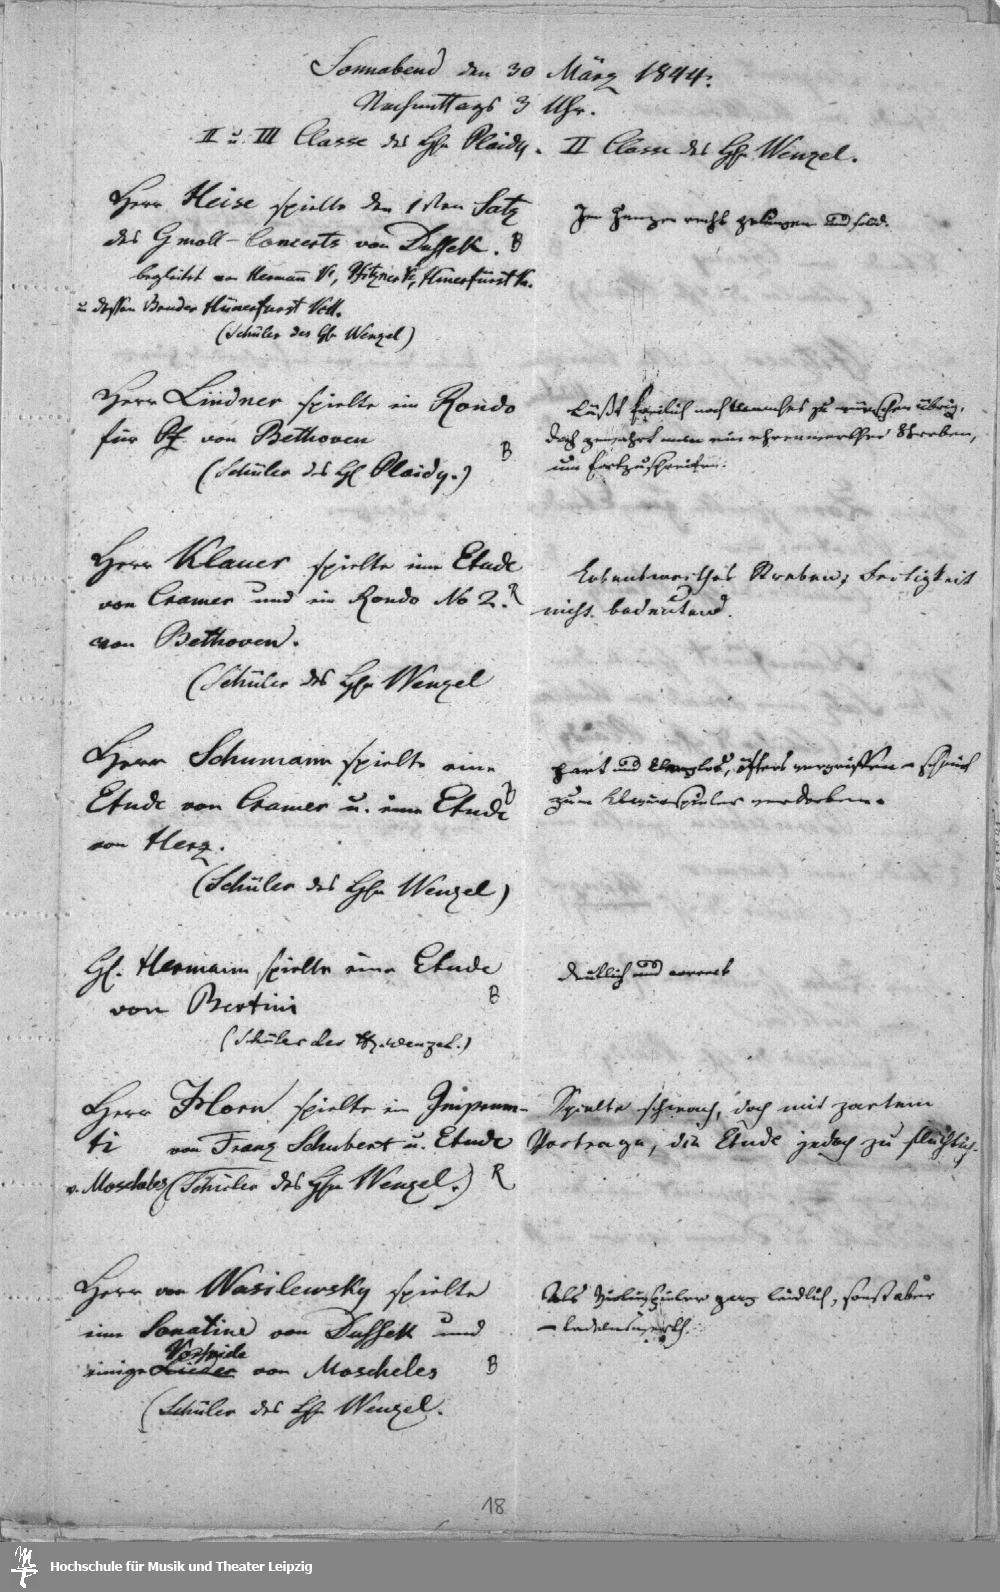 Sonnabend den 30 März 1844.
Nachmittags 3 Uhr.
II u. III Classe des H. Plaidy. II Classe des H. Wenzel.
Herr Heise spielte den 1sten Satz
des Gmoll-Concerts von Dussek. B
begleitet von Hermann Vl, Pfitzner Vl, Hünerfürst Va.
u dessen Bruder Hünerfurst Vcll.
(Schüler des H Wenzel)
Im Ganzen recht gelungen und solid.
Herr Lindner spielte ein Rondo
für Pf. von Bethoven B
(Schüler des H Plaidy.)
Läßt freilich noch Manches zu wünschen übrig,
doch gewahrt man ein ehrenwerthes Streben,
um fortzuschreiten.
Herr Klauer spielte eine Etude
von Cramer und ein Rondo No 2. R
von Bethoven.
(Schüler des H Wenzel
Lobenswerthes Streben; Fertigkeit
nicht bedeutend.
Herr Schumann spielte eine
Etude von Cramer u. eine Etude B
von Herz.
(Schüler des H Wenzel)
hart und klanglos, öfters vergriffen –
zum Clavierspieler verdorben.
H. Hermann spielte eine Etude
von Bertini B
(Schüler des H. Wenzel.)
deutlich und correct
Herr Horn spielte ein Impromp-
ti von Franz Schubert u. Etude
v. Moscheles (Schüler des H Wenzel.) R
Spielte schwach, doch mit zartem
Vortrage, die Etude jedoch zu flüchtig.
Herr von Wasilewsky spielte
eine Sonatine von Dussek und
Vorspiele
einige Lieder von Moscheles B
(Schüler des H Wenzel.
Als Violinspieler ganz leidlich, sonst aber
– tadelnswerth.
18
Hochschule für Musik und Theater Leipzig